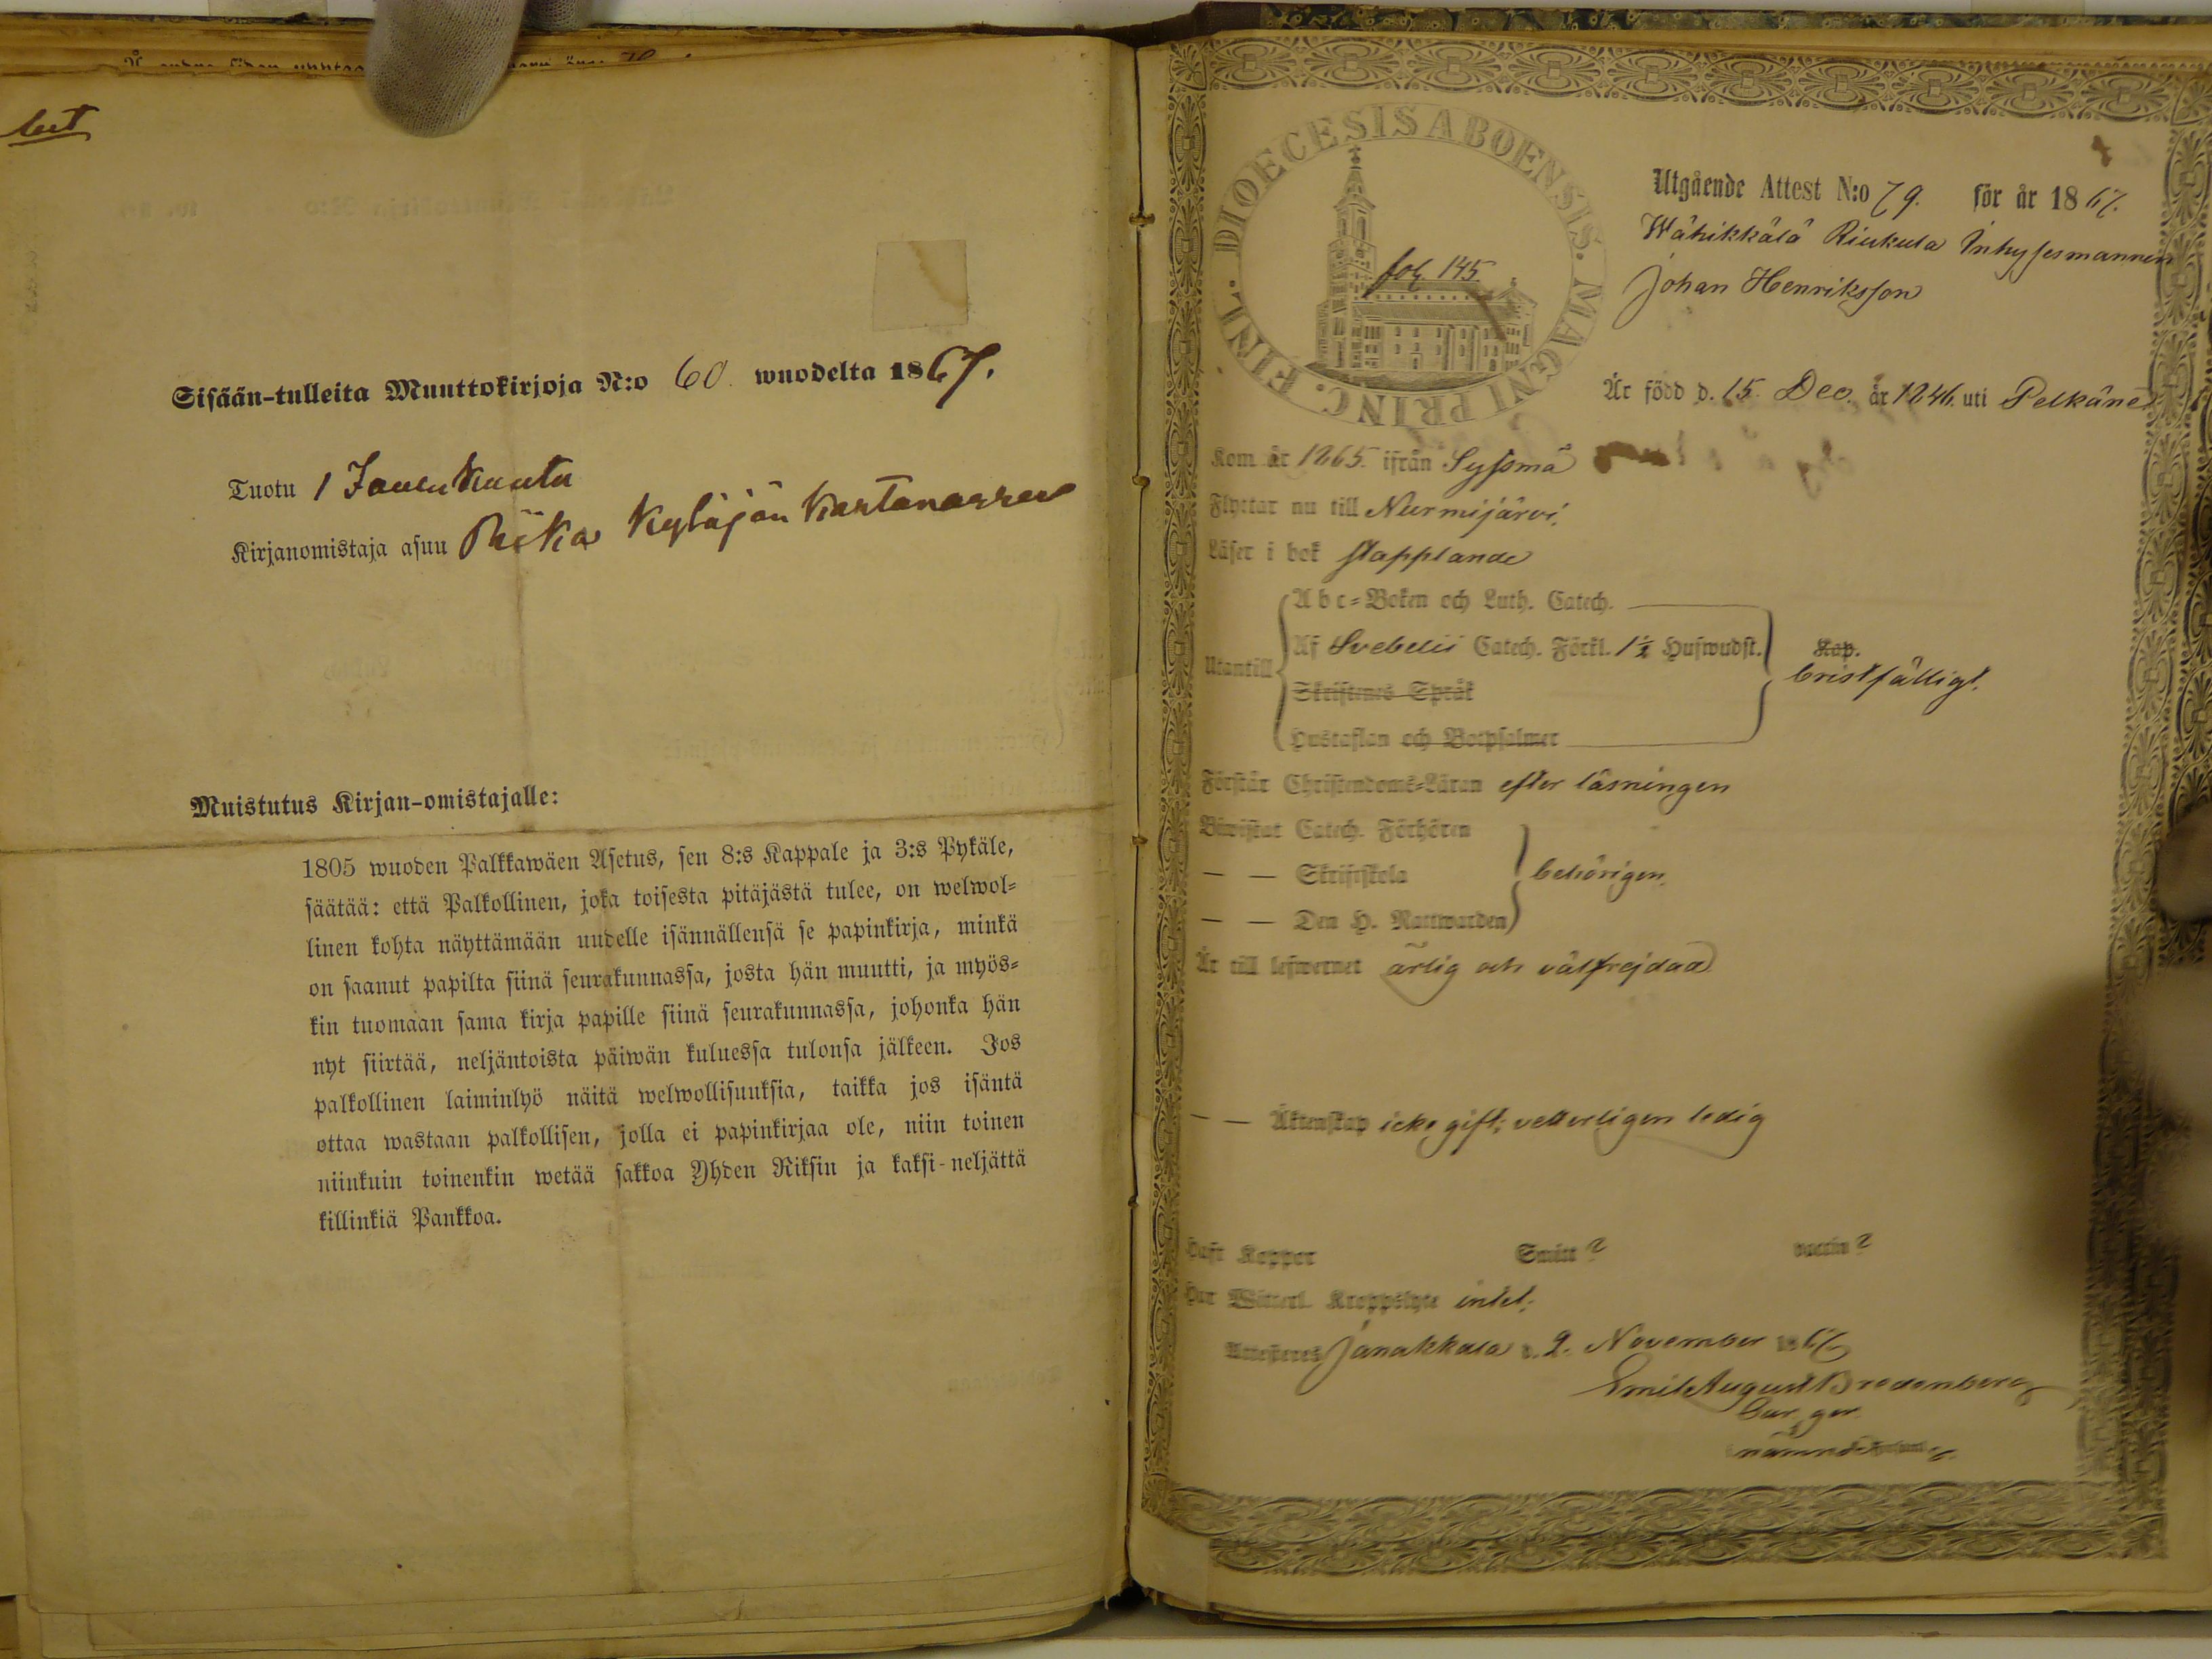 Sisään-tulleita Muuttokirjoja N:o 60. wuodelta 1867.
Tuotu 1 Joulukuuta
Kirjanomistaja asuu Kyläjän Kartanossa
Muistutus Kirjan-omistajalle:
1805 wuoden Palkkawäen Asetus, sen 8:s Kappale ja 3:s Pykäle,
säätää: että Palkollinen, joka toisesta pitäjästä tulee, on welwol-
linen kohta näyttämään uudelle isännällensä se papinkirja, minkä
on saanut papilta siinä seurakunnassa, josta hän muutti, ja myös-
kin tuomaan sama kirja papille siinä seurakunnassa, johonka hän
nyt siirtää, neljäntoista päiwän kuluessa tulonsa jälkeen. Jos
palkollinen laiminlyö näitä welwollisuuksia, taikka jos isäntä
ottaa wastaan palkollisen, jolla ei papinkirjaa ole, niin toinen
niinkuin toinenkin wetää sakkoa Yhden Riksin ja kaksi-neljättä
killinkiä Pankkoa.
DIOECESIS ABOENSIS. MAGNI PRINC. FINL.
fol. 145.
Utgående Attest N:o 79. för år 1867.
Wähikkälä Riukula Inhysesmannen
Johan Henriksson
Är född d. 15. Dec. år 1846. uti Pelkäne
Kom år 1865. ifrån Syssmä
Flyttar nu till Nurmijärvi.
Läser i bok stapplande
Utantill
Abc-Boken och Luth. Catech.
Af Svebelii Catech. Förkl. 1½ Hufwudst.
Skriftenes Språk
Hustaflan och Botpsalmer
Kap.
bristfälligt.
Förstår Christendoms-Läran efter läsningen
Biwistat Catech. Förhören
— — Skriftskola behörigen.
— — Den H. Nattwarden
Är till lefwernet ärlig och välfrejdad
— — Äktenskap icke gift; vetterligen ledig
Haft Koppor Smitt? vaccin?
Har Witterl. Kroppslyte intet;
Attesteras Janakkala d. 9. November 1867
Emil August Bredenberg